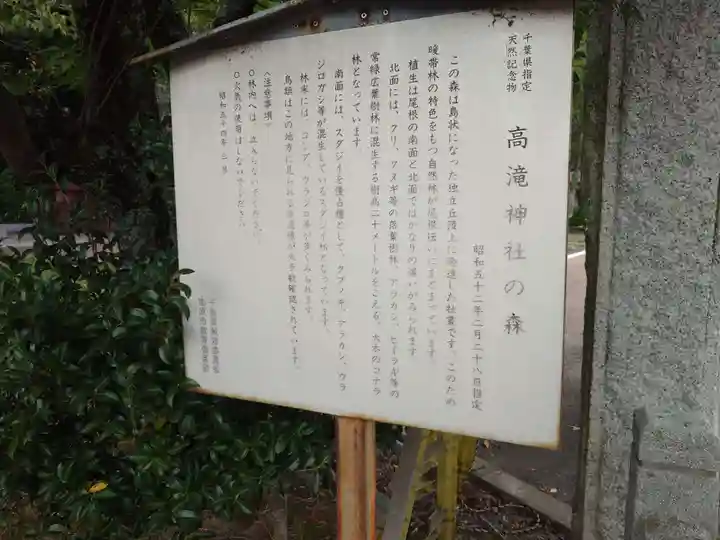 千葉県指定
天然記念物
高滝神社の森
昭和五十二年二月二十八日指定
この森は島状になった独立丘陵上に発達した社叢です。このため
暖帯林の特色をもつ自然林が尾根沿いにまとまっています。
植生は尾根の南面と北面ではかなりの違いがみられます
北面には、クリ、クヌギ等の落葉樹林、アラカシ、ヒイラギ等の
常緑広葉樹林に混生する樹高二十メートルをこえる、大木のコナラ
林となっています
南面には、スダジイを優占種として、タブノキ、アラカシ、ウラ
ジロガシ等が混生しているスダジイ林となっています。
林床には、コシダ、ウラジロ等が多くみられます。
鳥類はこの地方に見られる
確認されています。
〈注意事項〉
○林内へは、立入らないでください。
○火気の使用はしないでください。
昭和五十四年三月
千葉県教育委員会
市原市教育委員会